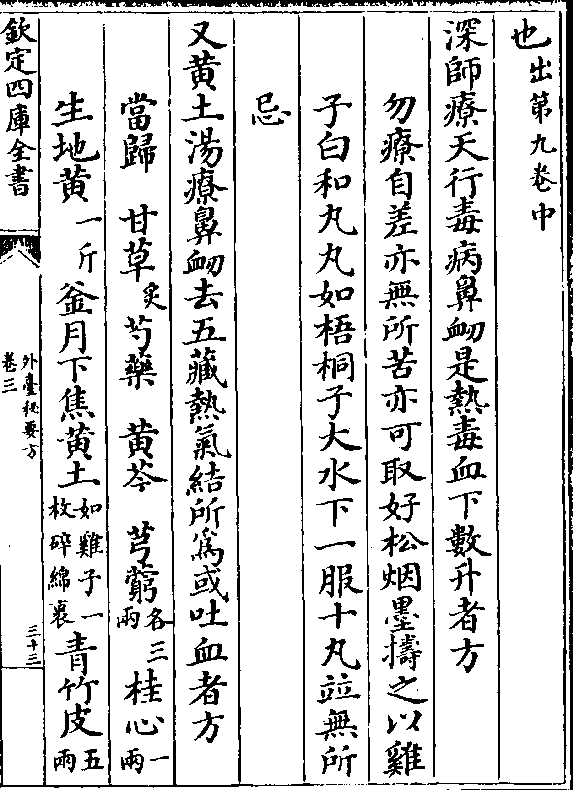 也出第九卷中
深師療天行毒病鼻衂是熱毒血下數升者方
勿療自差亦無所苦亦可取好松烟墨擣之以雞
子白和丸丸如梧桐子大水下一服十丸竝無所
忌
又黄土湯療鼻衂去五藏熱氣結所爲或吐血者方
當歸 甘草炙 芍藥 黄芩 芎藭各三兩 桂心一兩
生地黄一斤 釜月下焦黄土如雞子一枚碎綿裹 青竹皮五兩
欽定四庫全書
外臺秘要方
卷三
三十三